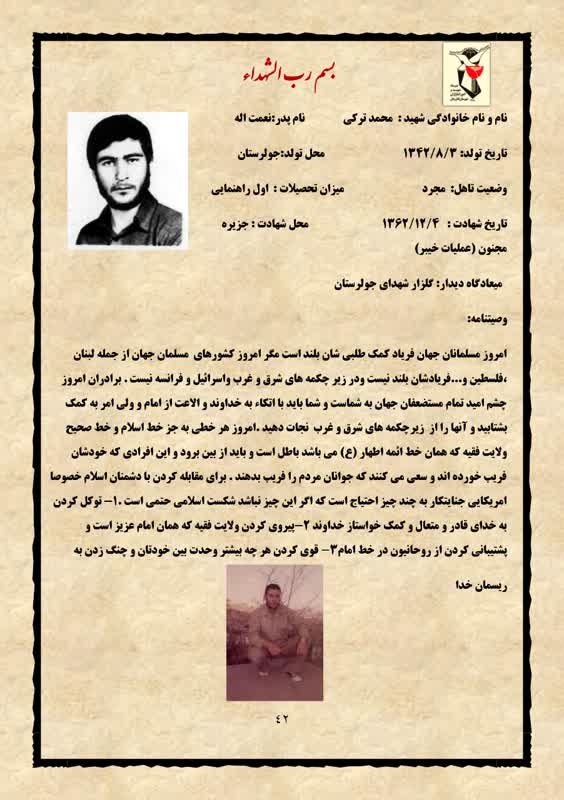 بسم رب الشهداء
نام و نام خانوادگی شهید : محمد ترکی نام پدر:نعمت اله
تاریخ تولد: ۱۳۴۲/۸/۳ محل تولد:جولرستان
وضعیت تاهل: مجرد میزان تحصیلات : اول راهنمایی
تاریخ شهادت : ۱۳۶۲/۱۲/۴ محل شهادت : جزیره
مجنون (عملیات خیبر)
میعادگاه دیدار: گلزار شهدای جولرستان
وصیتنامه:
امروز مسلمانان جهان فریاد کمک طلبی شان بلند است مگر امروز کشورهای مسلمان جهان از جمله لبنان
،فلسطین و...فریادشان بلند نیست ودر زیر چکمه های شرق و غرب واسرائیل و فرانسه نیست . برادران امروز
چشم امید تمام مستضعفان جهان به شماست و شما باید با اتکاء به خداوند و الاعت از امام و ولی امر به کمک
بشتابید و آنها را از زیرچکمه های شرق و غرب نجات دهید .امروز هر خطی به جز خط اسلام و خط صحیح
ولایت فقیه که همان خط ائمه اطهار (ع) می باشد باطل است و باید از بین برود و این افرادی که خودشان
فریب خورده اند و سعی می کنند که جوانان مردم را فریب بدهند . برای مقابله کردن با دشمنان اسلام خصوصا
امریکایی جنایتکار به چند چیز احتیاج است که اگر این چیز نباشد شکست اسلامی حتمی است .۱- توکل کردن
به خدای قادر و متعال و کمک خواستاز خداوند ۲-پیروی کردن ولایت فقیه که همان امام عزیز است و
پشتیبانی کردن از روحانیون در خط امام۳- قوی کردن هر چه بیشتر وحدت بین خودتان و چنگ زدن به
ریسمان خدا
۴۲